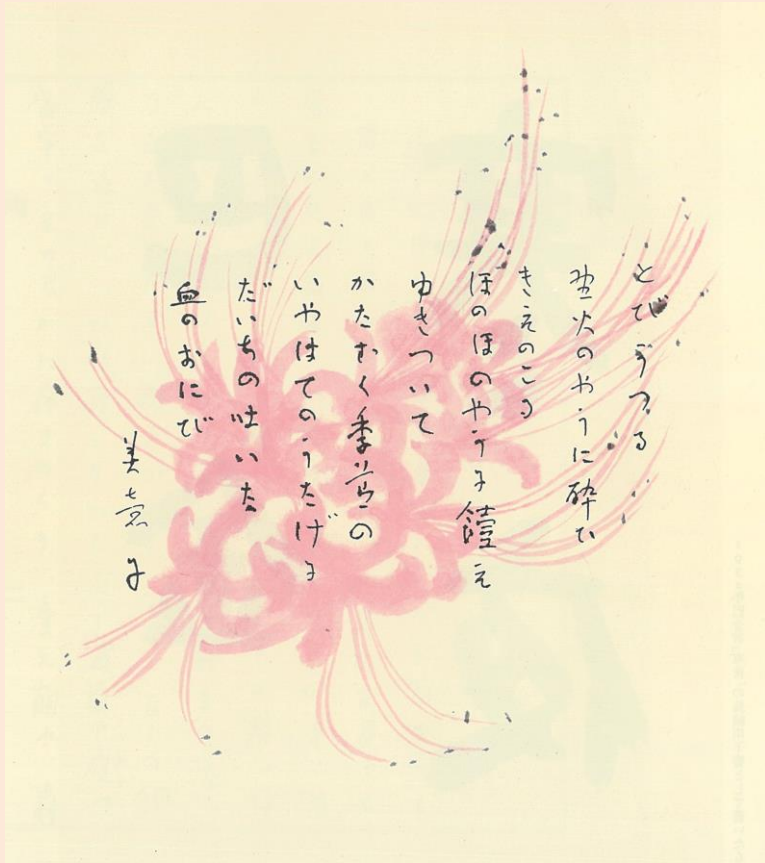 とびうつる
野火のやうに砕ひ
きえのこる
ほのほのやうに饐え
ゆきついて
かたむく季節の
いやはてのうたげに
だいちの吐いた
血のおにび
美恵子